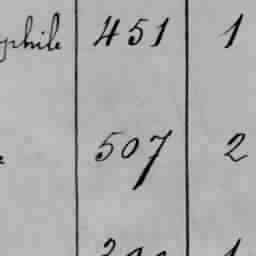 phile 451 1
507 2